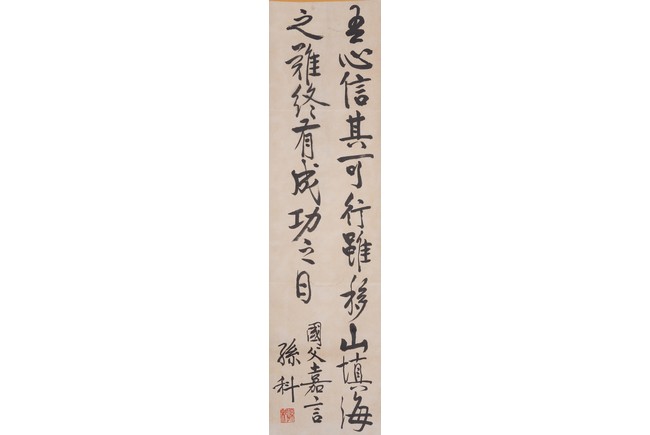 吾心信其可行雖移山填海
之難終有成功之日
國父嘉言
孫科